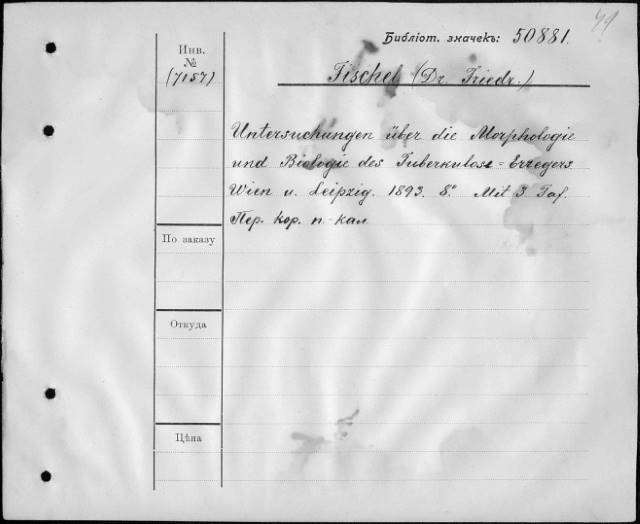 49
Библіот. значекъ: 50881.
Инв.
№
(7157)
Fischel (Dr. Friedr.)
Untersuchungen über die Morphologie
und Biologie des Tuberkulose-Erregers
Wien u. Leipzig. 1893. 8.° Mit 3 Taf.
Пер. кор. п. кал
По заказу
Откуда
Цѣна